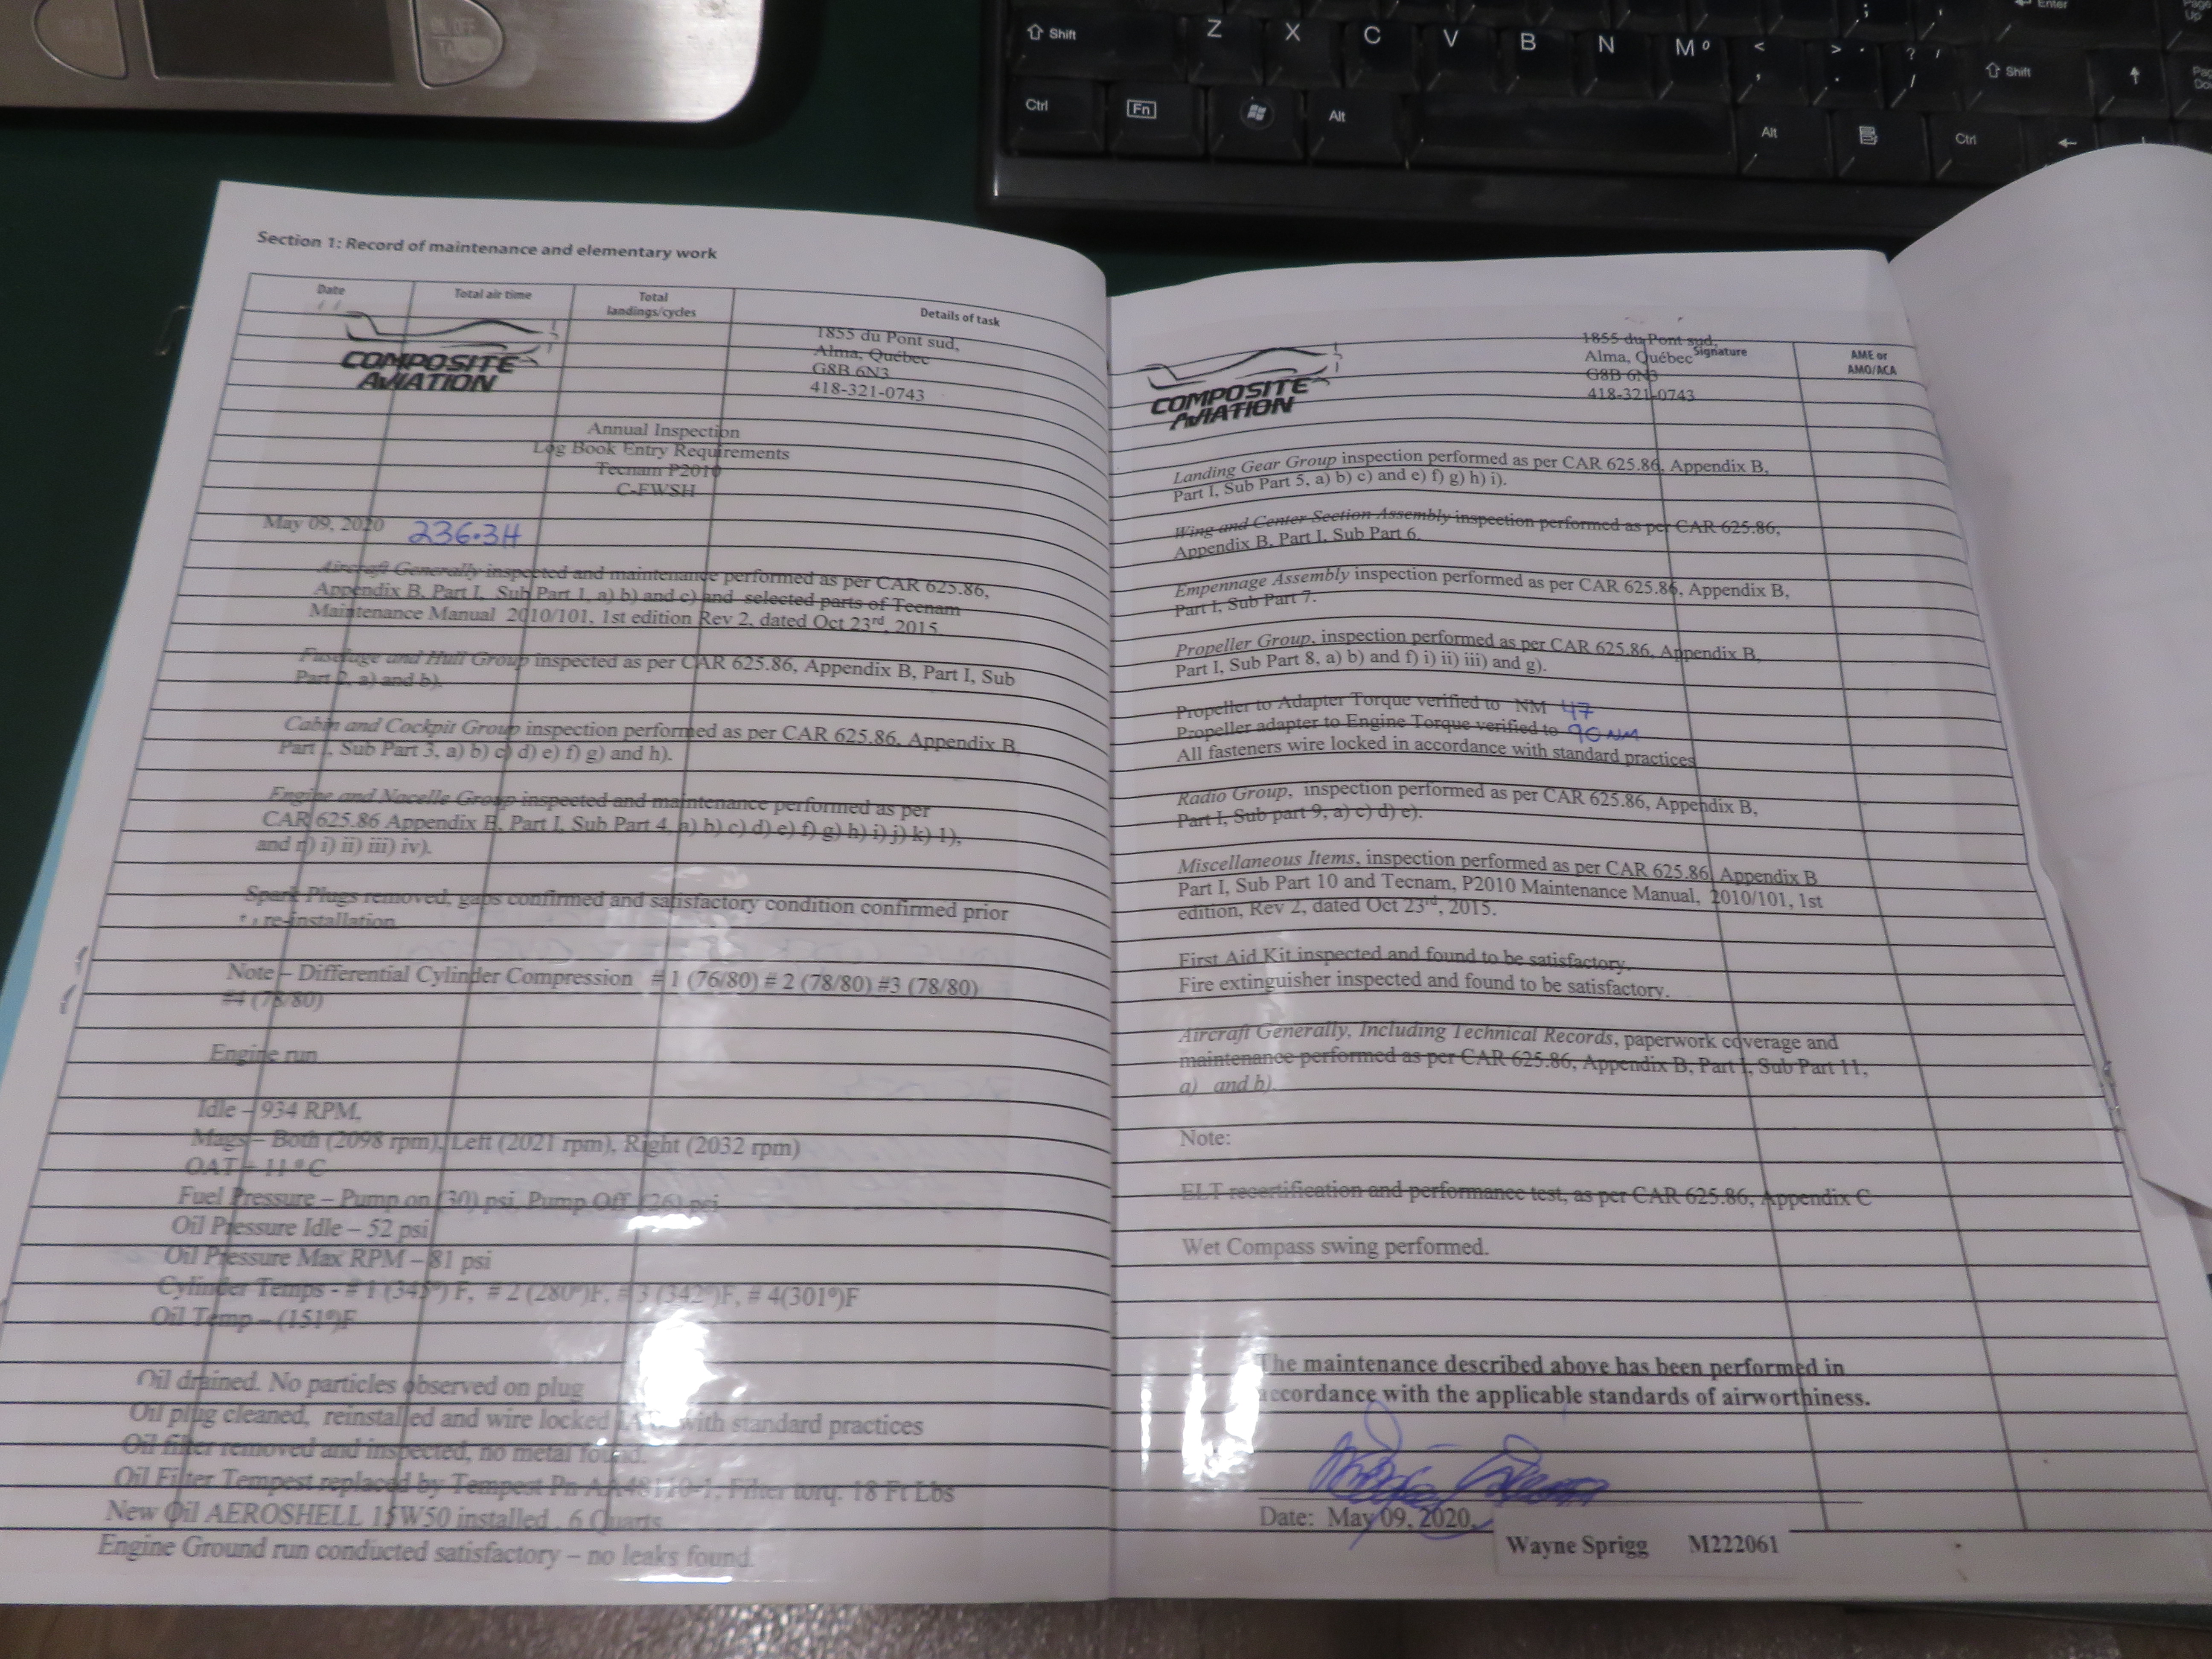 ON/OFF
Shift Z X C V B N M º < , > . ? / Shift
; ' Enter Page Up
Ctrl Fn Alt Alt Ctrl ←
Section 1: Record of maintenance and elementary work
Date Total air time Total landings/cycles Details of task
COMPOSITE AVIATION
1855 du Pont sud,
Alma, Québec
G8B 6N3
418-321-0743
Annual Inspection
Log Book Entry Requirements
Tecnam P2010
C-FWSH
May 09, 2020 236.3H
Aircraft Generally inspected and maintenance performed as per CAR 625.86,
Appendix B, Part I, Sub Part 1, a) b) and c) and selected parts of Tecnam
Maintenance Manual 2010/101, 1st edition Rev 2, dated Oct 23rd, 2015.
Fuselage and Hull Group inspected as per CAR 625.86, Appendix B, Part I, Sub
Part 2, a) and b).
Cabin and Cockpit Group inspection performed as per CAR 625.86, Appendix B,
Part I, Sub Part 3, a) b) c) d) e) f) g) and h).
Engine and Nacelle Group inspected and maintenance performed as per
CAR 625.86 Appendix B, Part I, Sub Part 4, a) b) c) d) e) f) g) h) i) j) k) l),
and n) i) ii) iii) iv).
Spark Plugs removed, gaps confirmed and satisfactory condition confirmed prior
to re-installation.
Note – Differential Cylinder Compression # 1 (76/80) # 2 (78/80) #3 (78/80)
#4 (78/80)
Engine run
Idle – 934 RPM,
Mags – Both (2098 rpm), Left (2021 rpm), Right (2032 rpm)
OAT – 11 º C
Fuel Pressure – Pump on (30) psi, Pump Off (26) psi
Oil Pressure Idle – 52 psi
Oil Pressure Max RPM – 81 psi
Cylinder Temps - # 1 (345º) F, # 2 (280º)F, # 3 (342º)F, # 4(301º)F
Oil Temp – (151º)F
Oil drained. No particles observed on plug
Oil plug cleaned, reinstalled and wire locked with standard practices
Oil filter removed and inspected, no metal found.
Oil Filter Tempest replaced by Tempest Pn AA48110-1, Filter torq. 18 Ft Lbs
New Oil AEROSHELL 15W50 installed . 6 Quarts
Engine Ground run conducted satisfactory – no leaks found.
Signature AME or AMO/ACA
COMPOSITE AVIATION
1855 du Pont sud,
Alma, Québec
G8B 6N3
418-321-0743
Landing Gear Group inspection performed as per CAR 625.86, Appendix B,
Part I, Sub Part 5, a) b) c) and e) f) g) h) i).
Wing and Center Section Assembly inspection performed as per CAR 625.86,
Appendix B, Part I, Sub Part 6.
Empennage Assembly inspection performed as per CAR 625.86, Appendix B,
Part I, Sub Part 7.
Propeller Group, inspection performed as per CAR 625.86, Appendix B,
Part I, Sub Part 8, a) b) and f) i) ii) iii) and g).
Propeller to Adapter Torque verified to NM 47
Propeller adapter to Engine Torque verified to 90 NM
All fasteners wire locked in accordance with standard practices
Radio Group, inspection performed as per CAR 625.86, Appendix B,
Part I, Sub part 9, a) c) d) e).
Miscellaneous Items, inspection performed as per CAR 625.86, Appendix B
Part I, Sub Part 10 and Tecnam, P2010 Maintenance Manual, 2010/101, 1st
edition, Rev 2, dated Oct 23rd, 2015.
First Aid Kit inspected and found to be satisfactory.
Fire extinguisher inspected and found to be satisfactory.
Aircraft Generally, Including Technical Records, paperwork coverage and
maintenance performed as per CAR 625.86, Appendix B, Part I, Sub Part 11,
a) and b).
Note:
ELT recertification and performance test, as per CAR 625.86, Appendix C
Wet Compass swing performed.
The maintenance described above has been performed in
accordance with the applicable standards of airworthiness.
Date: May 09, 2020.
Wayne Sprigg M222061